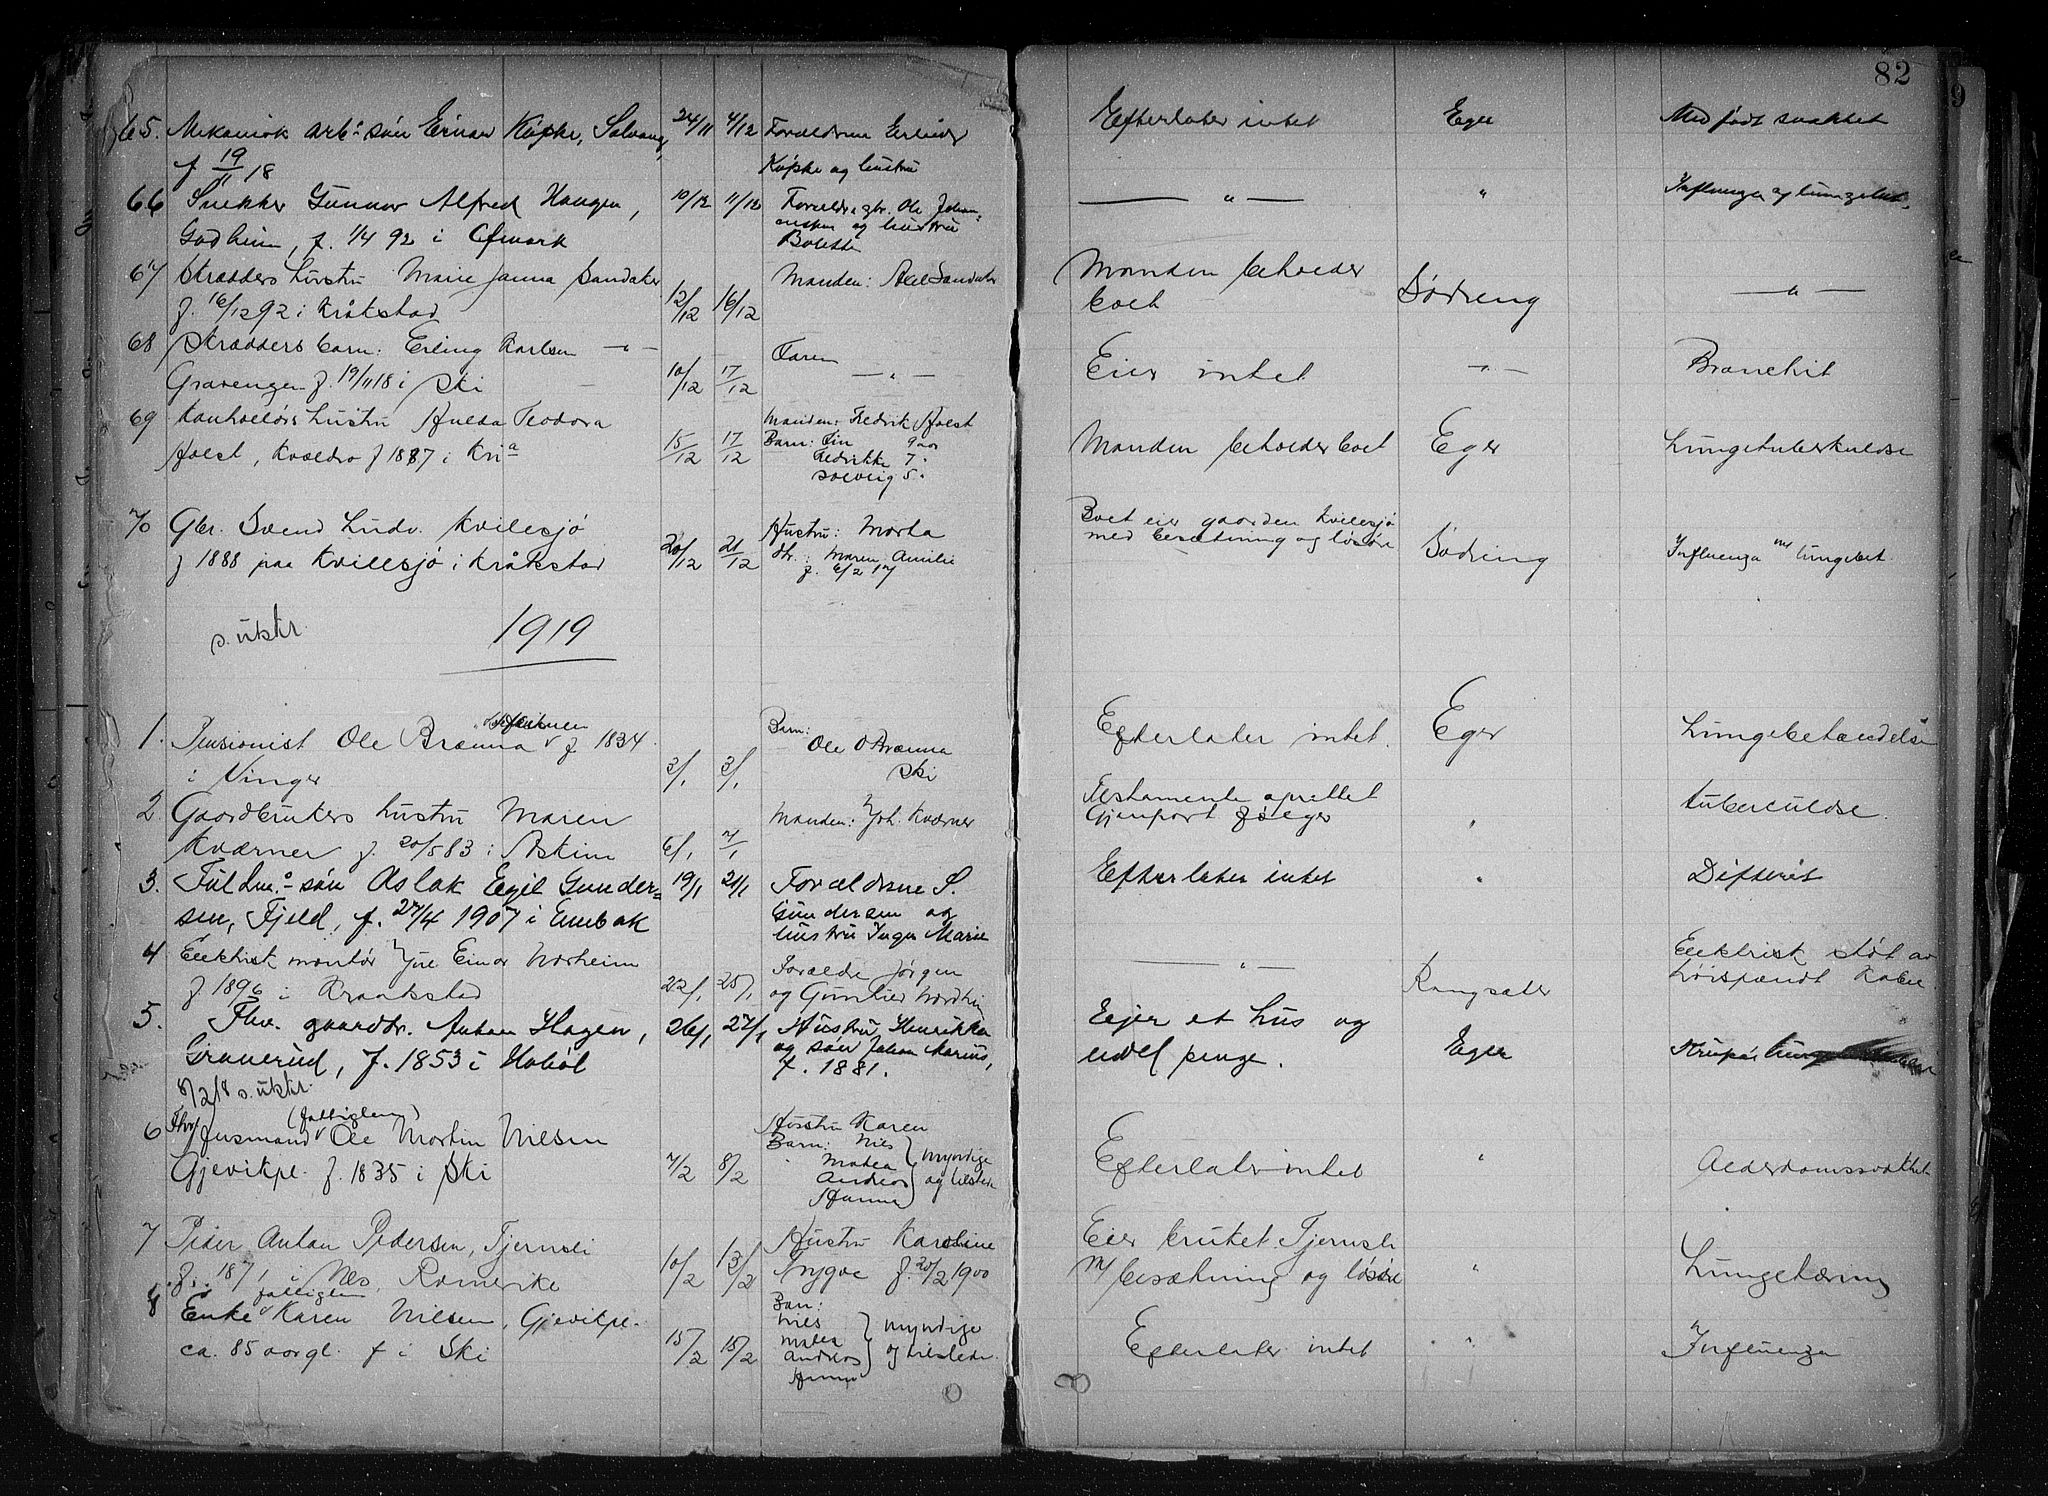 82
65. Mekanisk arb.s søn Einar Köpke, Solvang, 24/11 4/12 Forældrene Erling Efterlater intet Eger Medfødt svakhet
f 19/11 18 Köpke og hustru
66 Snekker Gunnar Alfred Haugen, 10/12 11/12 Forældre gbr. Ole Johan- — " — " Influenza og lungebet.
f. 1/4 92 i ansken og hustru
Bolette
67 Skrædders hustru Marie Janna Sandaker Manden: Axel Sandaker Manden beholder
f. 16/12 92 i Kråkstad 12/12 16/12 boet Södreng — " —
68 Skrædders barn: Erling Karlsen — " — Faren
Gravengen f. 19/11 18 i Ski 10/12 17/12 — " — Eier intet — " — Bronchit
69 hustru Hulda Teodora Manden: Fredrik Holst
Holst, f 1887 i Kria 15/12 17/12 Barn: 9 aar Manden beholder boet Eger Lungetuberkulose
Fredrikke 7 "
Solveig 5 "
70 Gbr. Svend Ludv. Kvilesjö Hustru: Marta Boet eier gaarden Kvilesjö
f 1888 paa Kvillesjö i Kråkstad 20/12 21/12 dtr.: Maren Amilie med besætning og løsøre Södreng Influenza m/ lungebet.
f. 6/2 17
s. uktr. 1919
1. Pensionist Ole Brænna f. 1834 Barn:
i Vinger 2/1 3/1 Ole O Brænna Efterlater intet. Eger Lungebetændelse
Ski
2. Gaardbrukers hustru Maren Manden: Joh. Kværner Testamente oprettet tuberculose.
Kværner f. 20/5 83 i Askim 6/1 7/1 Gjenpart følger "
3. Fuldm.s søn Aslak Egil Gunder- 19/1 21/1 Forældrene S. Efterlater intet " Difterit
sen, Fjeld, f. 27/4 1907 i Enebak Gundersen og
hustru Inga Marie
4 Elektrisk montør Einar Norheim Forældre Jørgen — " — Elektrisk støt av
f. 1896 i Kraakstad 22/1 25/1 og Gunhild Nordheim Kongsæter høispændt kabel
5. Fhv. gaardbr. Anton Hagen, 26/1 27/1 Hustru Henrikka Eier et hus og
Granerud, f. 1853 i Hobøl og søn Johan Marius, endel penge. Eger
f. 1881.
8/2 18 s. uktr.
6 Fhv Husmand (fattiglem) Ole Martin Nilsen Hustru Karen
Gjevikpl. f. 1835 i Ski 7/2 8/2 Barn: Nils myndige Efterlater intet " Alderdomssvakhet
Matea og tilstede
Andreas
Hanna
7 Peder Anton Pedersen, Tjernsli Hustru Karoline Eier bruket Tjernsli
f. 1871 i Nes, Romerike 10/2 13/2 Trygve f. 20/2 1900 m/ besætning og løsøre " Lungetæring
8 Enke fattiglem Karen Nilsen, Gjevikpl. Barn:
ca. 85 aar gl. f i Ski 15/2 15/2 Nils myndige Efterlater intet " Influenza
Matea og tilstede.
Andreas
Hanna